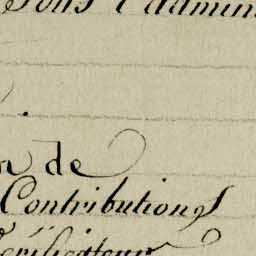 Sous l'admin
de
Contributions
Vérificateur